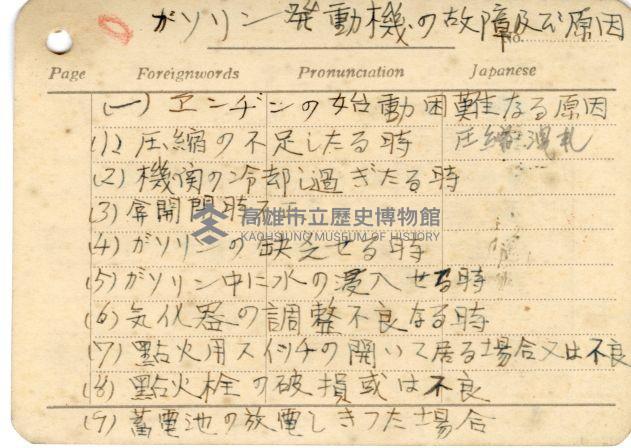 ガソリン発動機の故障及び原因
No.
Page Foreignwords Pronunciation Japanese
(一) ヱンヂンの始動困難なる原因
(1) 圧縮の不足したる時 圧縮洩れ
(2) 機関の冷却し過ぎたる時
(3) 弁開閉時不正
高雄市立歷史博物館
KAOHSIUNG MUSEUM OF HISTORY
(4) ガソリンの缺乏せる時
(5) ガソリン中に水の浸入せる時
(6) 気化器の調整不良なる時
(7) 點火用スイッチの開いて居る場合又は不良
(8) 點火栓の破損或は不良
(9) 蓄電池の放電しきつた場合